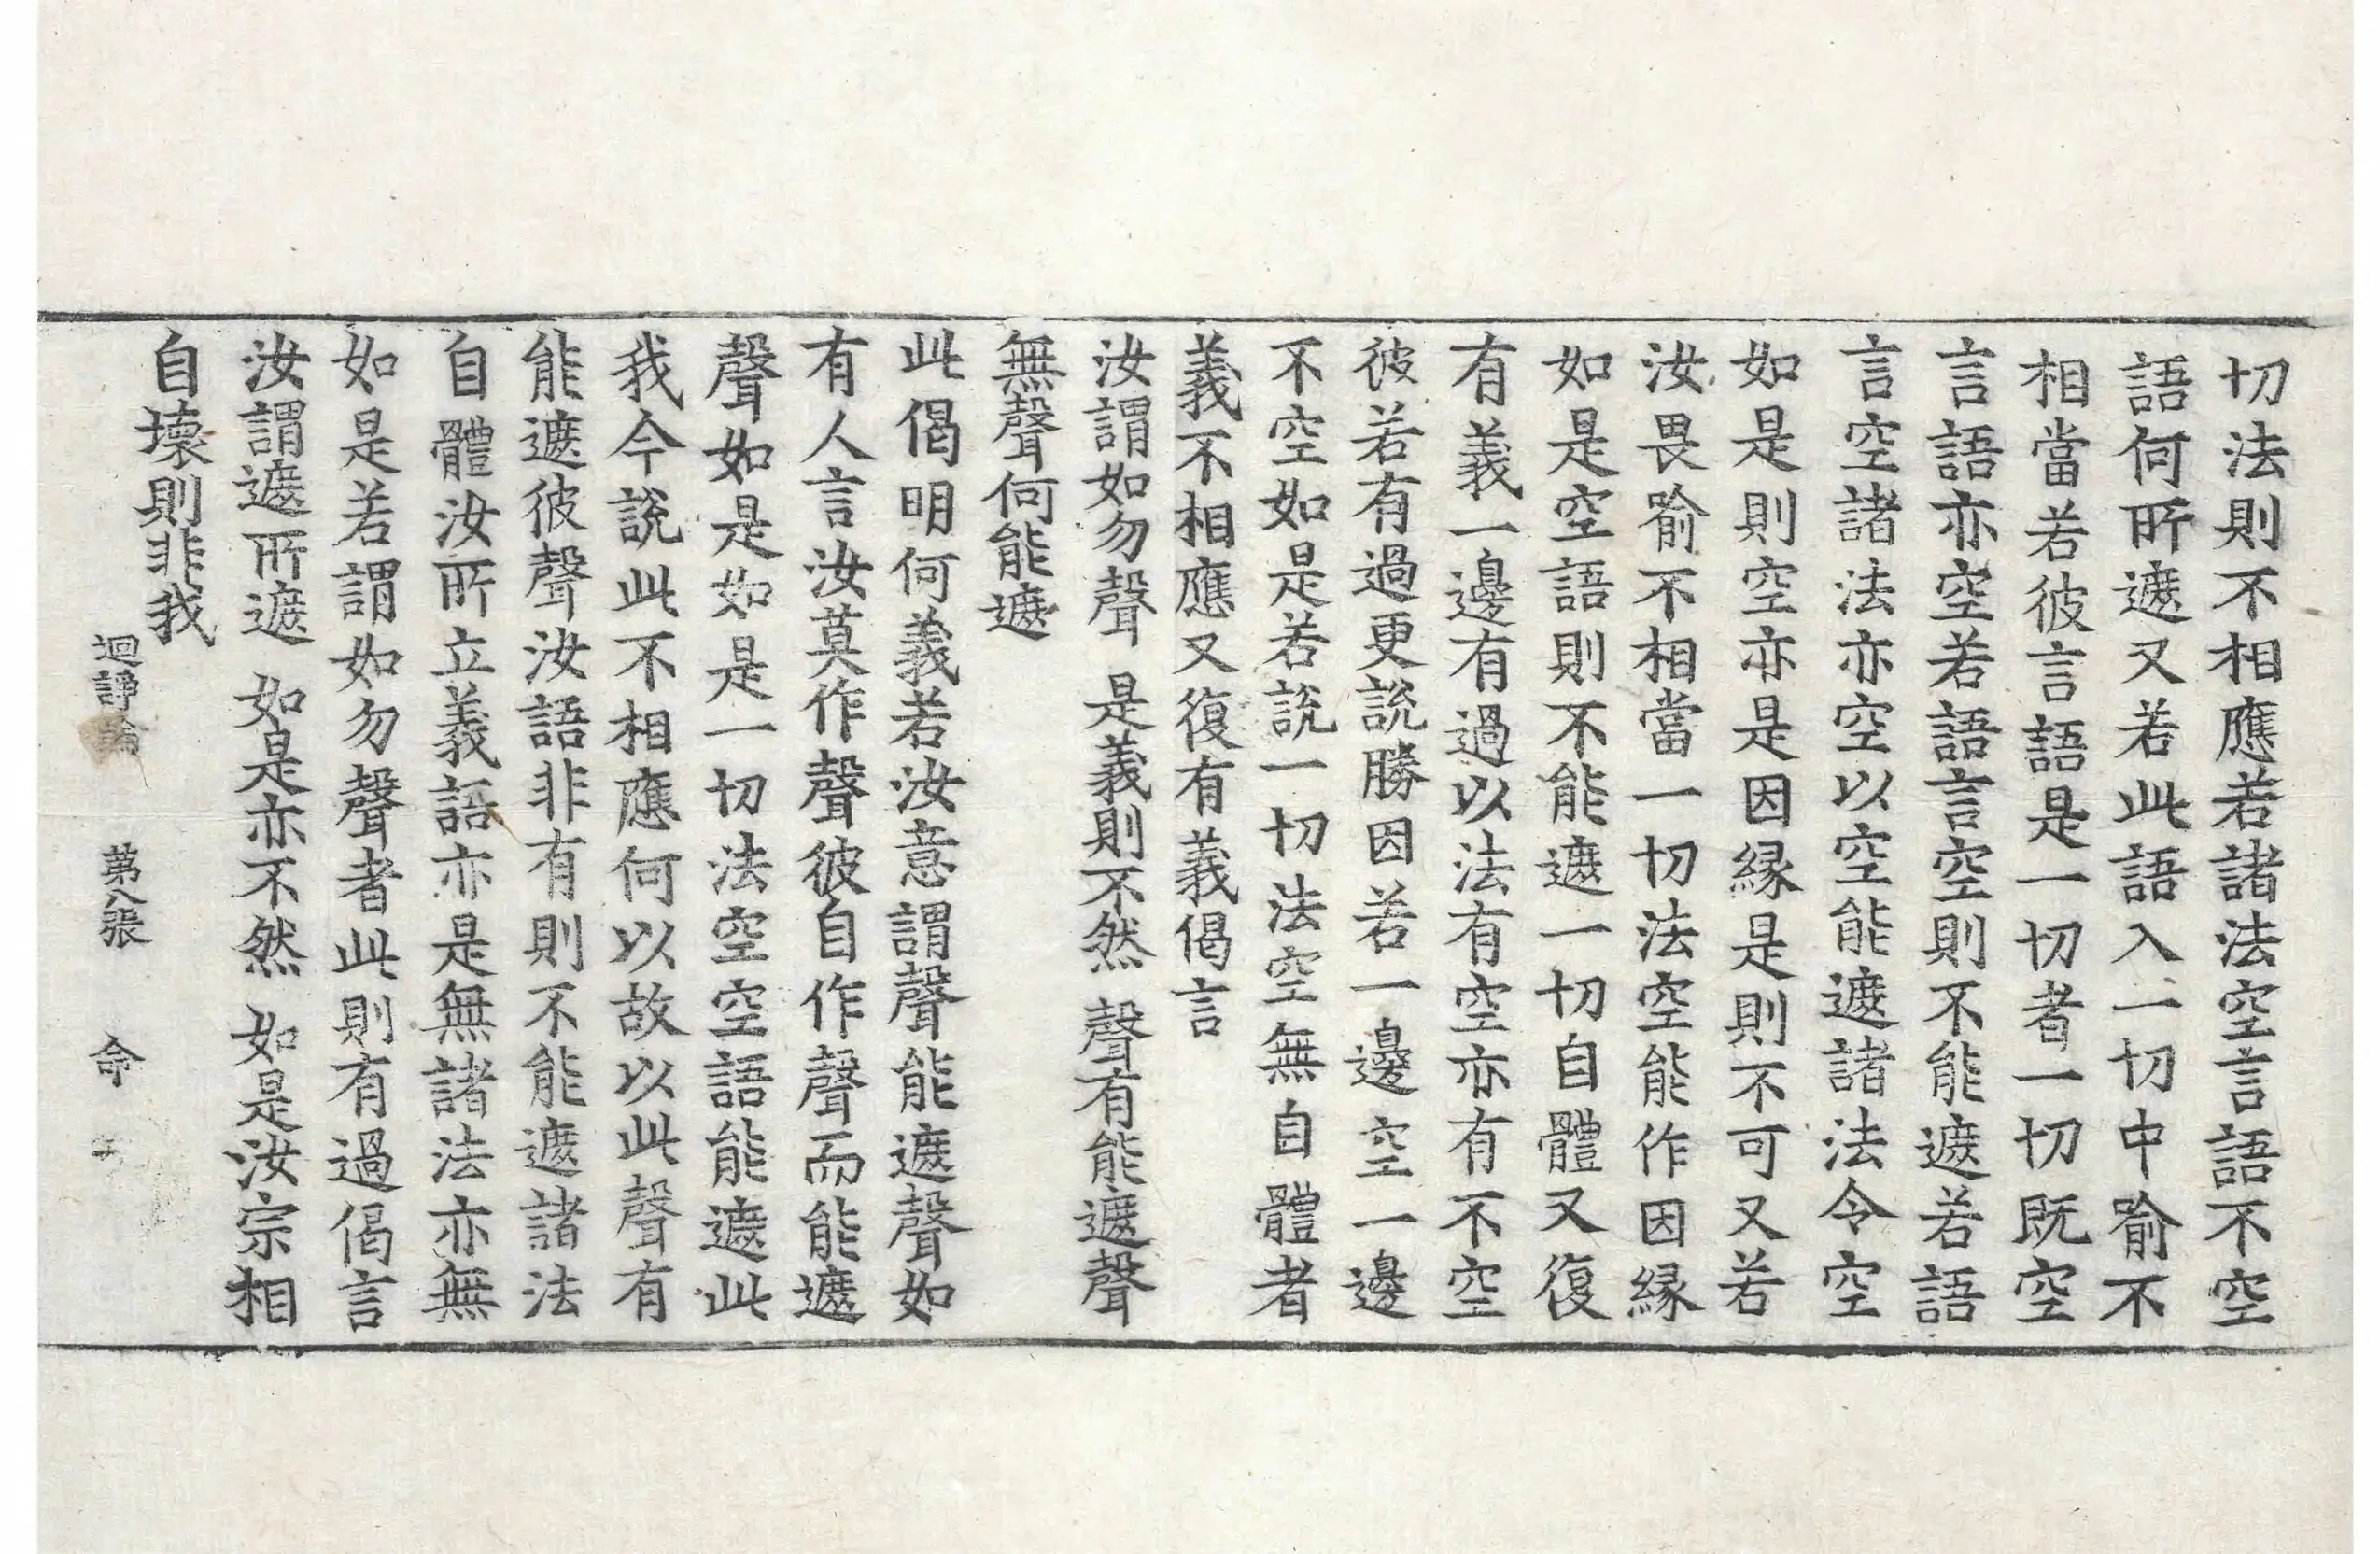 切法則不相應若諸法空言語不空
語何所遮又若此語入一切中喻不
相當若彼言語是一切者一切既空
言語亦空若語言空則不能遮若語
言空諸法亦空以空能遮諸法令空
如是則空亦是因緣是則不可又若
汝畏喻不相當一切法空能作因緣
如是空語則不能遮一切自體又復
有義一邊有過以法有空亦有不空
彼若有過更說勝因若一邊空一邊
不空如是若說一切法空無自體者
義不相應又復有義偈言
汝謂如勿聲 是義則不然 聲有能遮聲
無聲何能遮
此偈明何義若汝意謂聲能遮聲如
有人言汝莫作聲彼自作聲而能遮
聲如是如是一切法空空語能遮此
我今說此不相應何以故以此聲有
能遮彼聲汝語非有則不能遮諸法
自體汝所立義語亦是無諸法亦無
如是若謂如勿聲者此則有過偈言
汝謂遮所遮 如是亦不然 如是汝宗相
自壞則非我
迴諍論 第八張 命